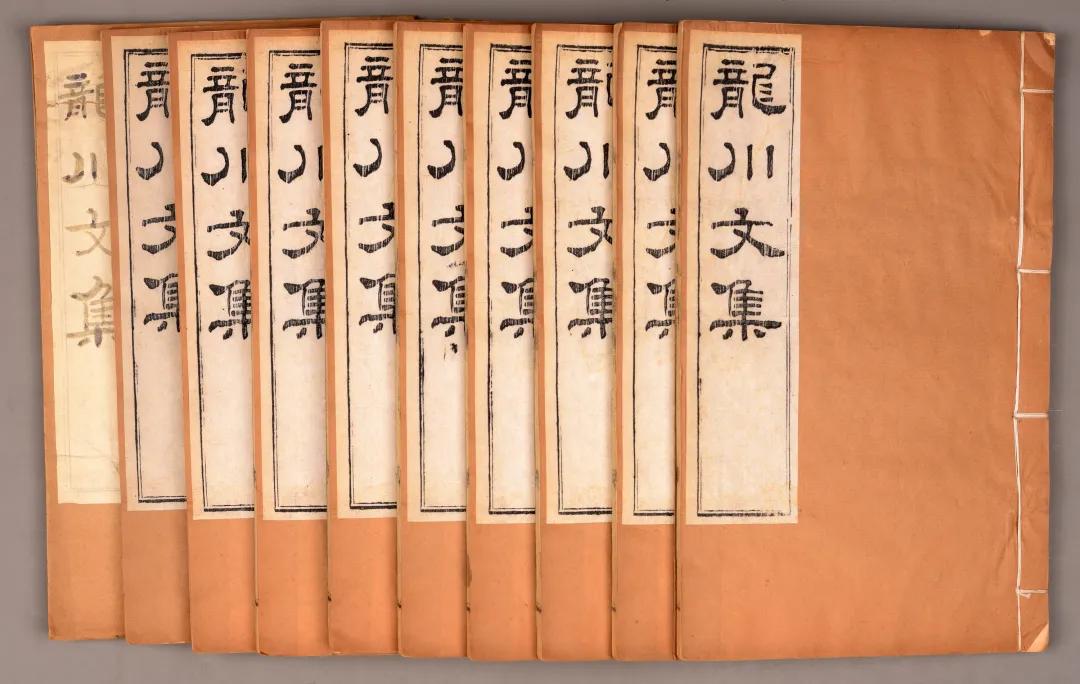 龍川文集
龍川文集
龍川文集
龍川文集
龍川文集
龍川文集
龍川文集
龍川文集
龍川文集
龍川文集